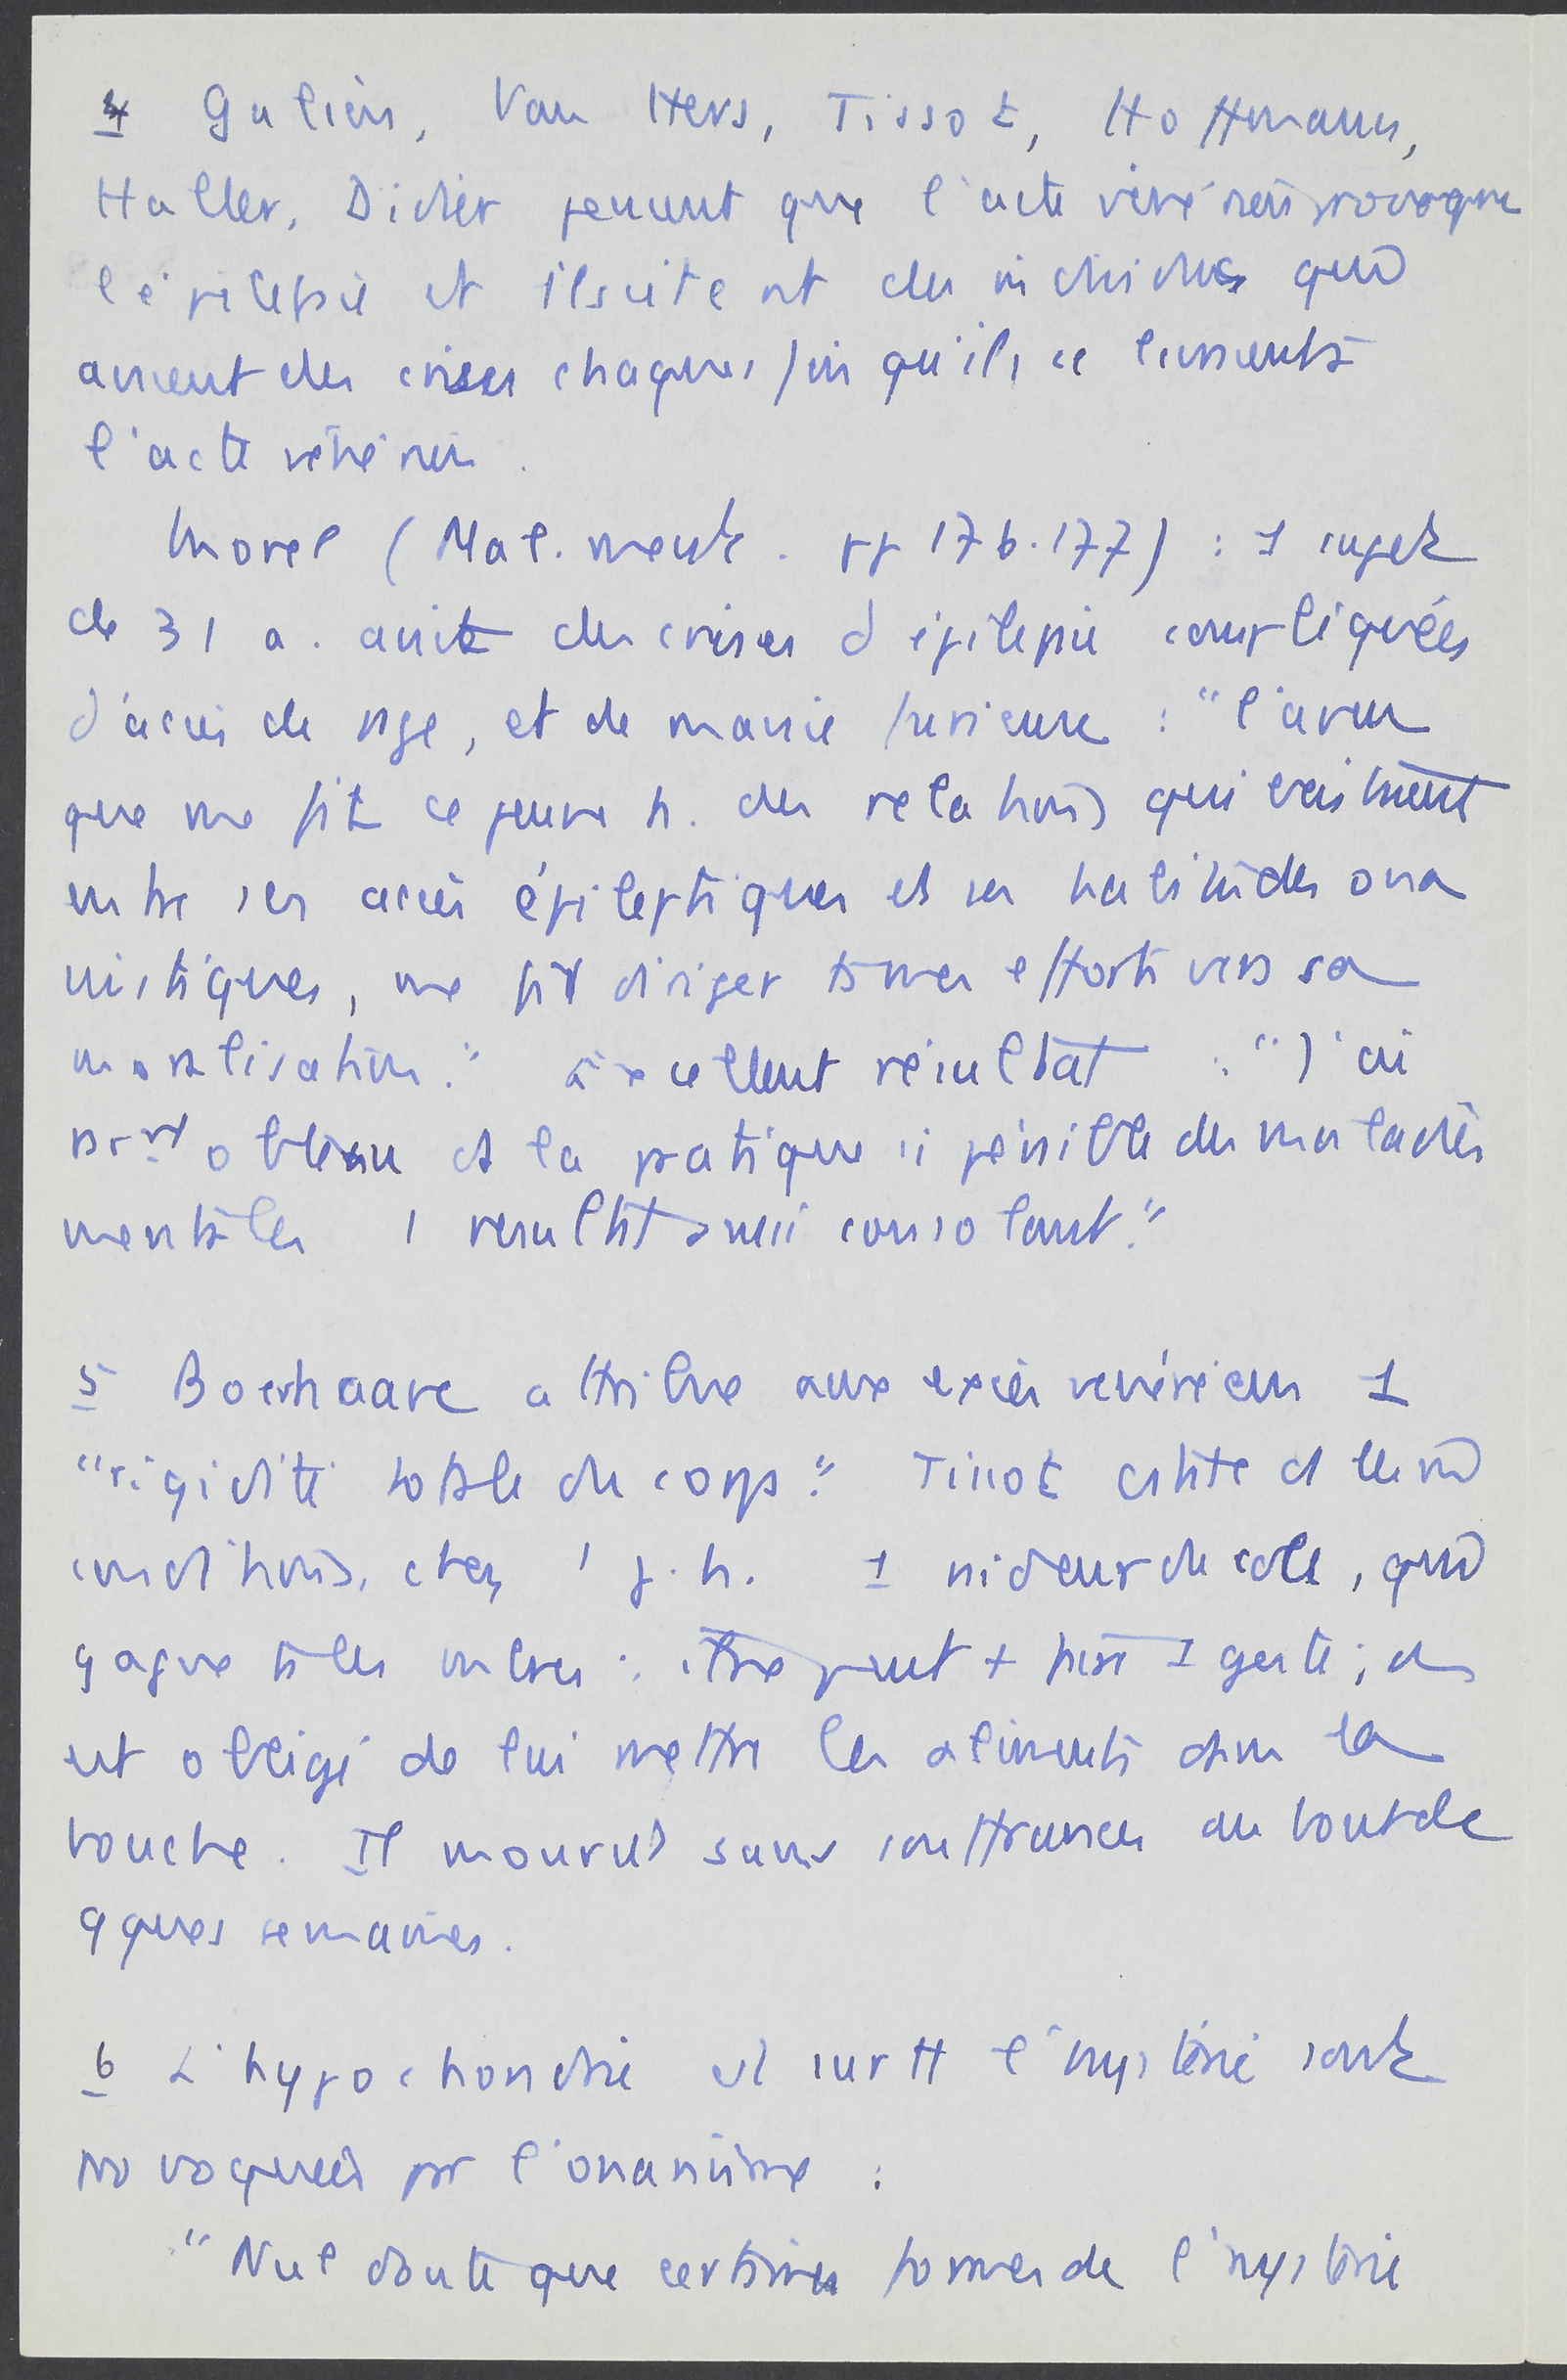 4 Galien, Van Hers, Tissot, Hoffmann,
Haller, Didier pensent que l'acte vénérien provoque
l'épilepsie et ils citent des individus qui
avaient des crises chaque fois qu'ils se livraient à
l'acte vénérien.
Morel (Mal. ment. pp 176.177) : 1 sujet
de 31 a. avait des crises d'épilepsie compliquées
d'accès de rage, et de manie furieuse : "l'aveu
que me fit ce jeune h. des relations qui existaient
entre ses accès épileptiques et ses habitudes ona
nistiques, me fit diriger ts mes efforts vers sa
moralisation." Excellent résultat : "J'ai
rart obtenu ds la pratique si pénible des maladies
mentales 1 résultat aussi consolant."
5 Boerhaave attribue aux excès vénériens 1
"rigidité totale du corps." Tissot
conditions, chez 1 j.h. 1 raideur du cou, qui
gagne ts les mbres : ne peut + faire 1 geste ; on
est obligé de lui mettre les aliments dans la
bouche. Il mourut sans souffrances au bout de
qques semaines.
6 L'hypochondrie et surtt l'hystérie sont
provoquées pr l'onanisme :
"Nul doute que certaines formes de l'hystérie